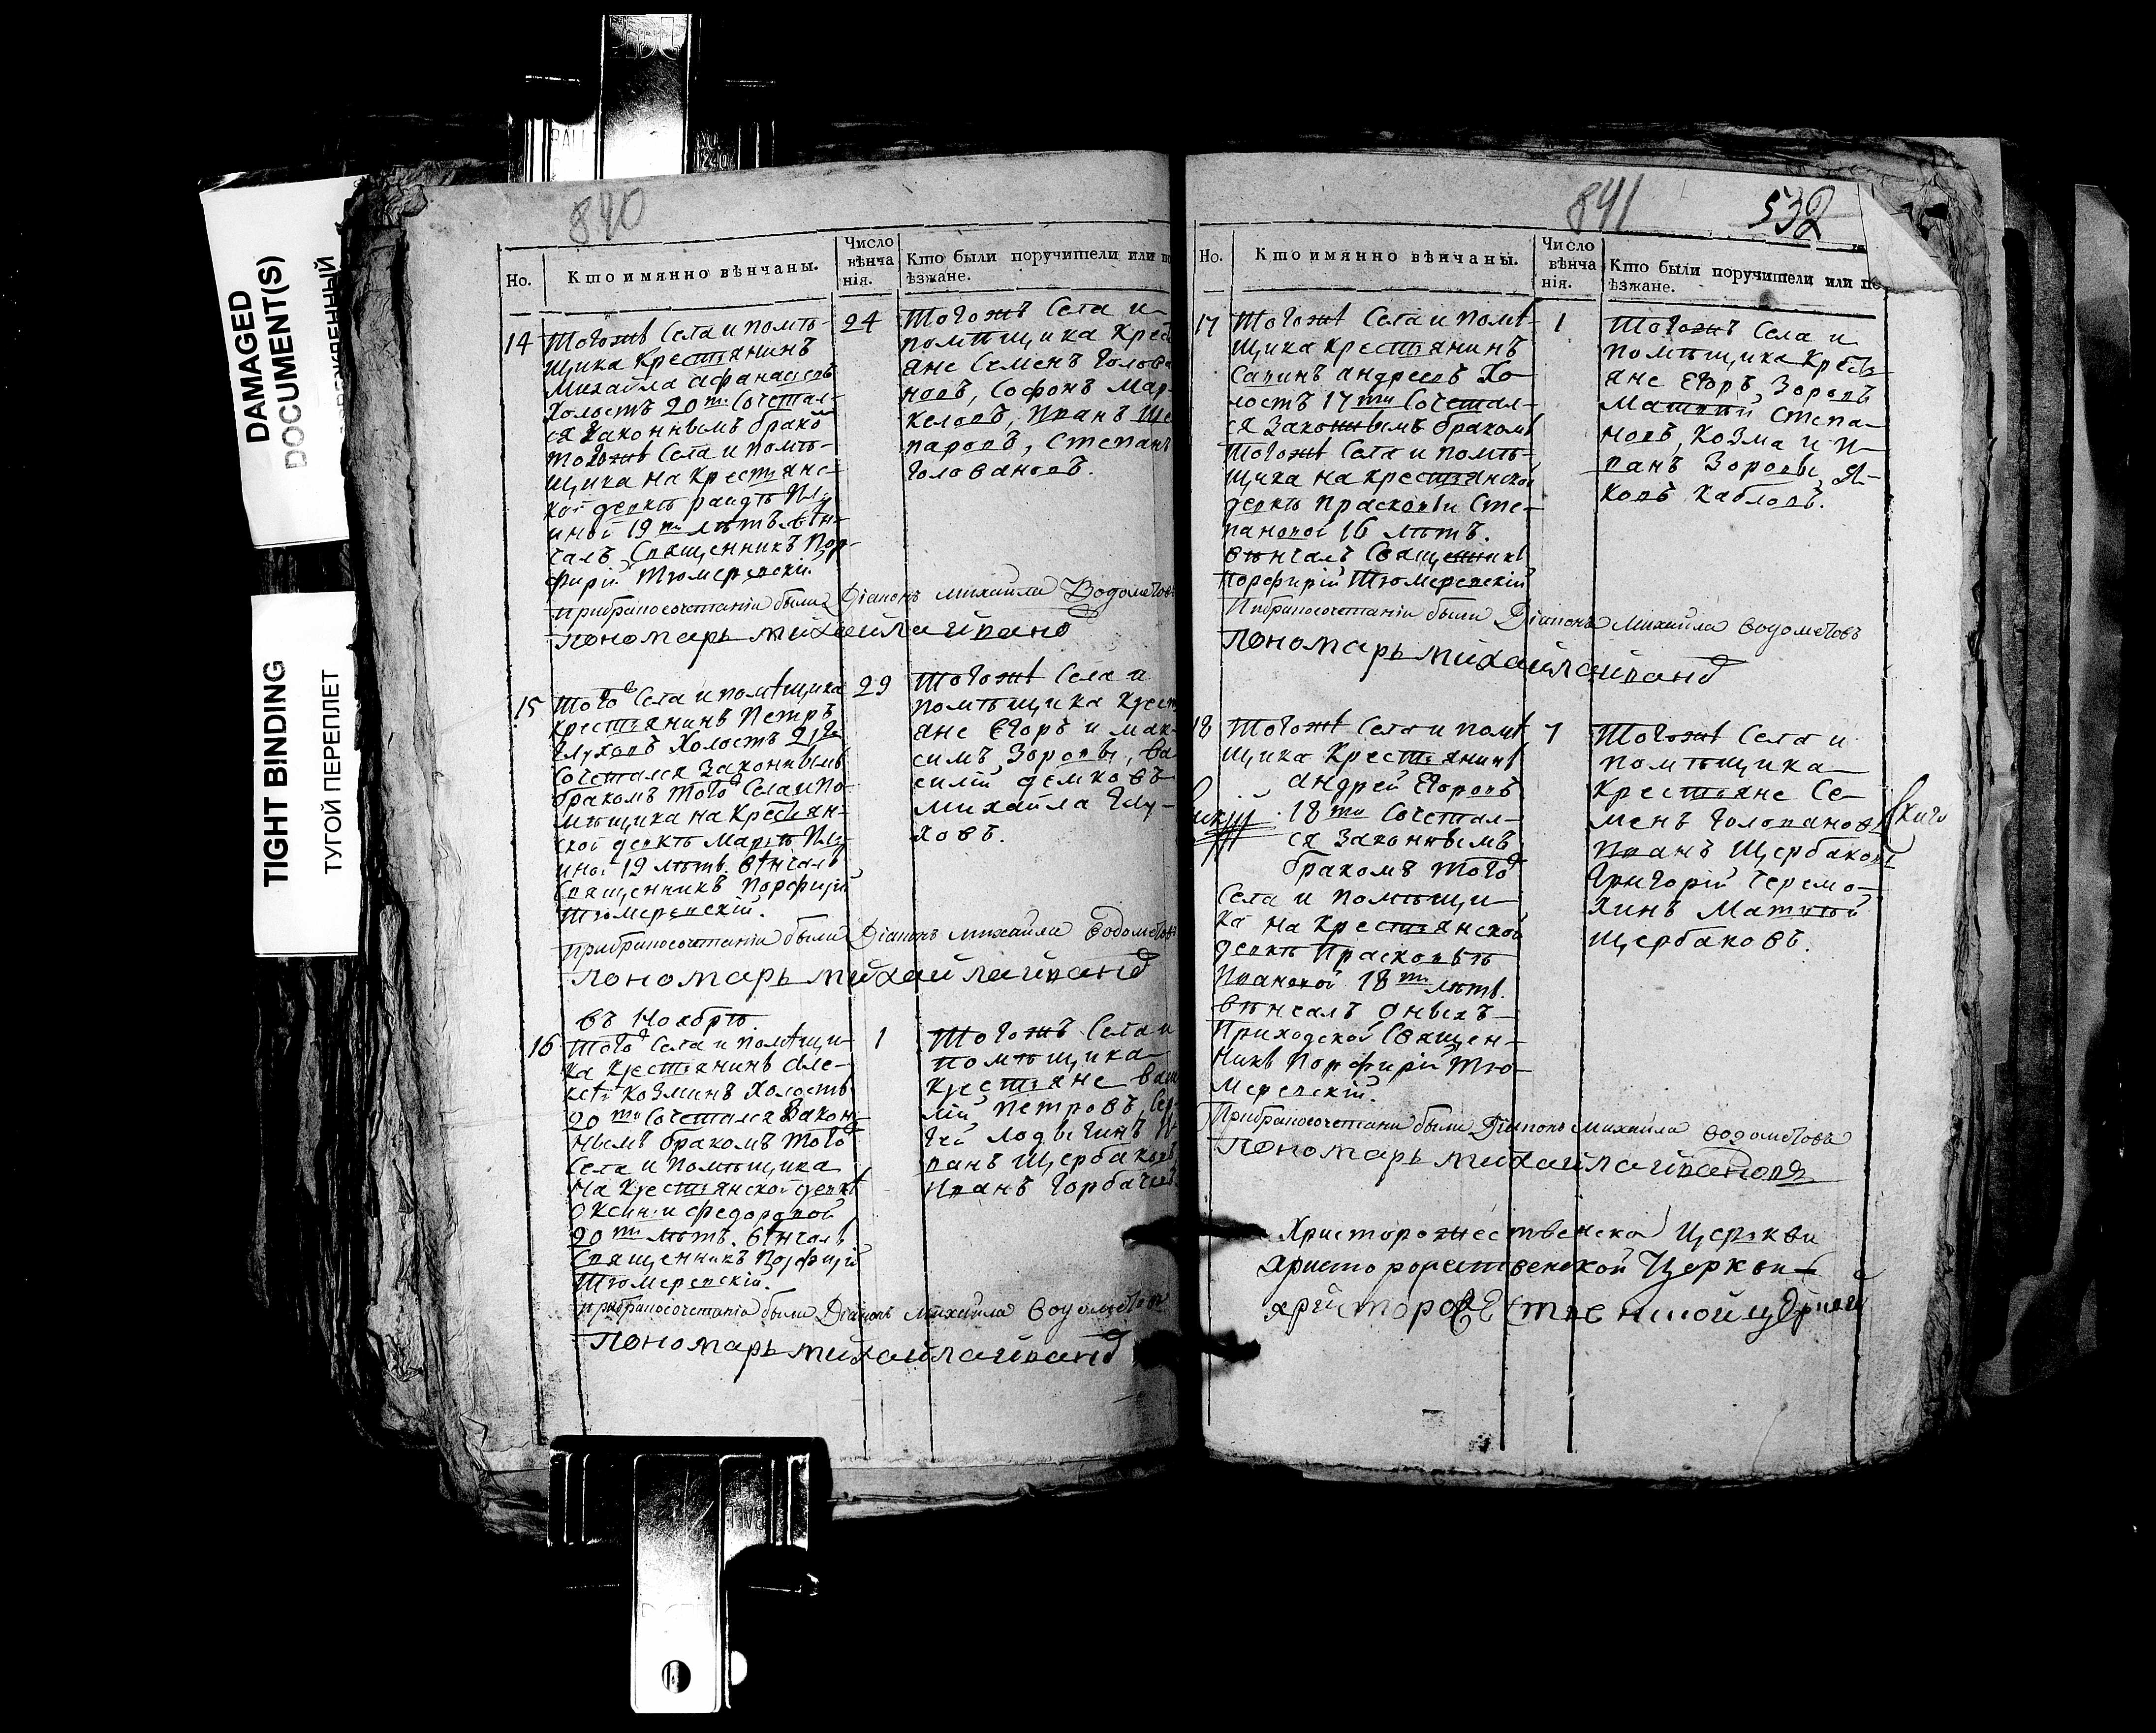 DAMAGED
DOCUMENT(S)
TIGHT BINDING
ТУГОЙ ПЕРЕПЛЕТ
840
Но.
Кто имянно вѣнчаны.
Число
вѣнча
нія.
Кто были поручители или
ѣзжане.
14
Тогожъ Села и помѣ-
щика Крестьянинъ
Михайла Афанасьевъ
Холостъ 20ти Сочетал-
ся Законнымъ брако
Тогожъ Села и помѣ-
щика на Крестьянс-
кой девкѣ
иной 19ти лѣтъ. вѣн-
чалъ Священникъ Пор-
фирій Тюмеревскій.
24
Тогожъ Села и
помѣщика Крес
яне Семенъ Голова
новъ, Софонъ Мар-
келовъ, Иванъ Ще
Степанъ
Головановъ.
При бракосочетаніи были Діаконъ Михаила Водолѣтовъ
Пономарь Михайла Ивановъ
15
Того Села и помѣщика
Крестьянинъ Петръ
Глуховъ Холостъ
Сочетался Законнымъ
бракомъ Того Села и по-
мѣщика на Крестьян-
ской девкѣ Марѣѣ
иной 19 лѣтъ. вѣнчалъ
Священникъ Порфирій
Тюмеревскій.
29
Тогожъ Села и
помѣщика Крест
яне Егоръ и Мак-
симъ Зоровы, Ва
силій Демковъ
Михайла Глу-
ховъ.
При бракосочетаніи были Діаконъ Михаила
Пономарь Михайла Ивановъ
въ Ноябрѣ.
16
Того Села и помѣщи-
ка Крестьянинъ Але-
ксѣй Козминъ Холостъ
20ти Сочетался Закон-
нымъ бракомъ Того
Села и Помѣщика
на Крестьянской девкѣ
Оксиньи Федоровой
20ти лѣтъ. вѣнчалъ
Священникъ Порфирій
Тюмеревскій.
1
Тогожъ Села и
помѣщика
Крестьяне Васи
лій Петровъ, Сер-
гѣй Лодыгинъ И
ванъ Щербаковъ
Иванъ Горбачев
При бракосочетаніи были Діаконъ Михаила
Пономарь Михайла Ивановъ
841
532
Но.
Кто имянно вѣнчаны.
Число
вѣнча
нія.
Кто были поручители или по
ѣзжане.
17
Тогожъ Села и помѣ-
щика крестьянинъ
Савинъ Андреевъ Хо-
лостъ 17ти Сочетал-
ся Законнымъ бракомъ
Тогожъ Села и помѣ-
щика на крестьянской
девкѣ Прасковьи Сте-
пановой 16 лѣтъ.
вѣнчалъ Священникъ
Порфирій Тюмеревскій
1
Тогожъ Села и
помѣщика Кресть
яне Егоръ Зоровъ
Матвѣй Степа-
новъ, Козма и И-
ванъ Зоровы, Я-
ковъ Кабловъ.
При бракосочетаніи были Діаконъ Михаила
Пономарь Михайла Ивановъ
18
Тогожъ Села и помѣ
щика Крестьянинъ
Андрей Егоровъ
18ти Сочетал-
ся Законнымъ
бракомъ Того
Села и помѣщи-
ка на Крестьянской
девкѣ Прасковьѣ
Ивановой 18ти лѣтъ.
вѣнчалъ оныхъ
Приходской Священ-
никъ Порфирій Тю-
меревскій.
7
Тогожъ Села и
помѣщика
Крестьяне Се-
менъ Головановъ
Иванъ Щербаковъ
Григорій Черемо-
хинъ Матвѣй
Щербаковъ.
При бракосочетаніи были Діаконъ Михаила
Пономарь Михайла Ивановъ
Христорожественской Церкви
Христорожественской Церкви
Христорожественской церкви